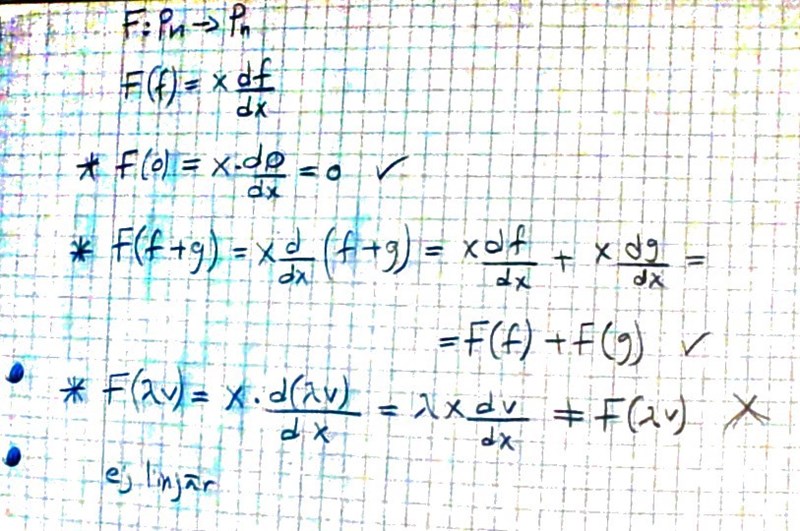 F: Pn → Pn
F(f) = x df/dx
* F(0) = x · d0/dx = 0 ✓
* F(f+g) = x d/dx (f+g) = x df/dx + x dg/dx =
= F(f) + F(g) ✓
* F(λv) = x · d(λv)/dx = λ x dv/dx ≠ F(λv) ✗
ej linjär